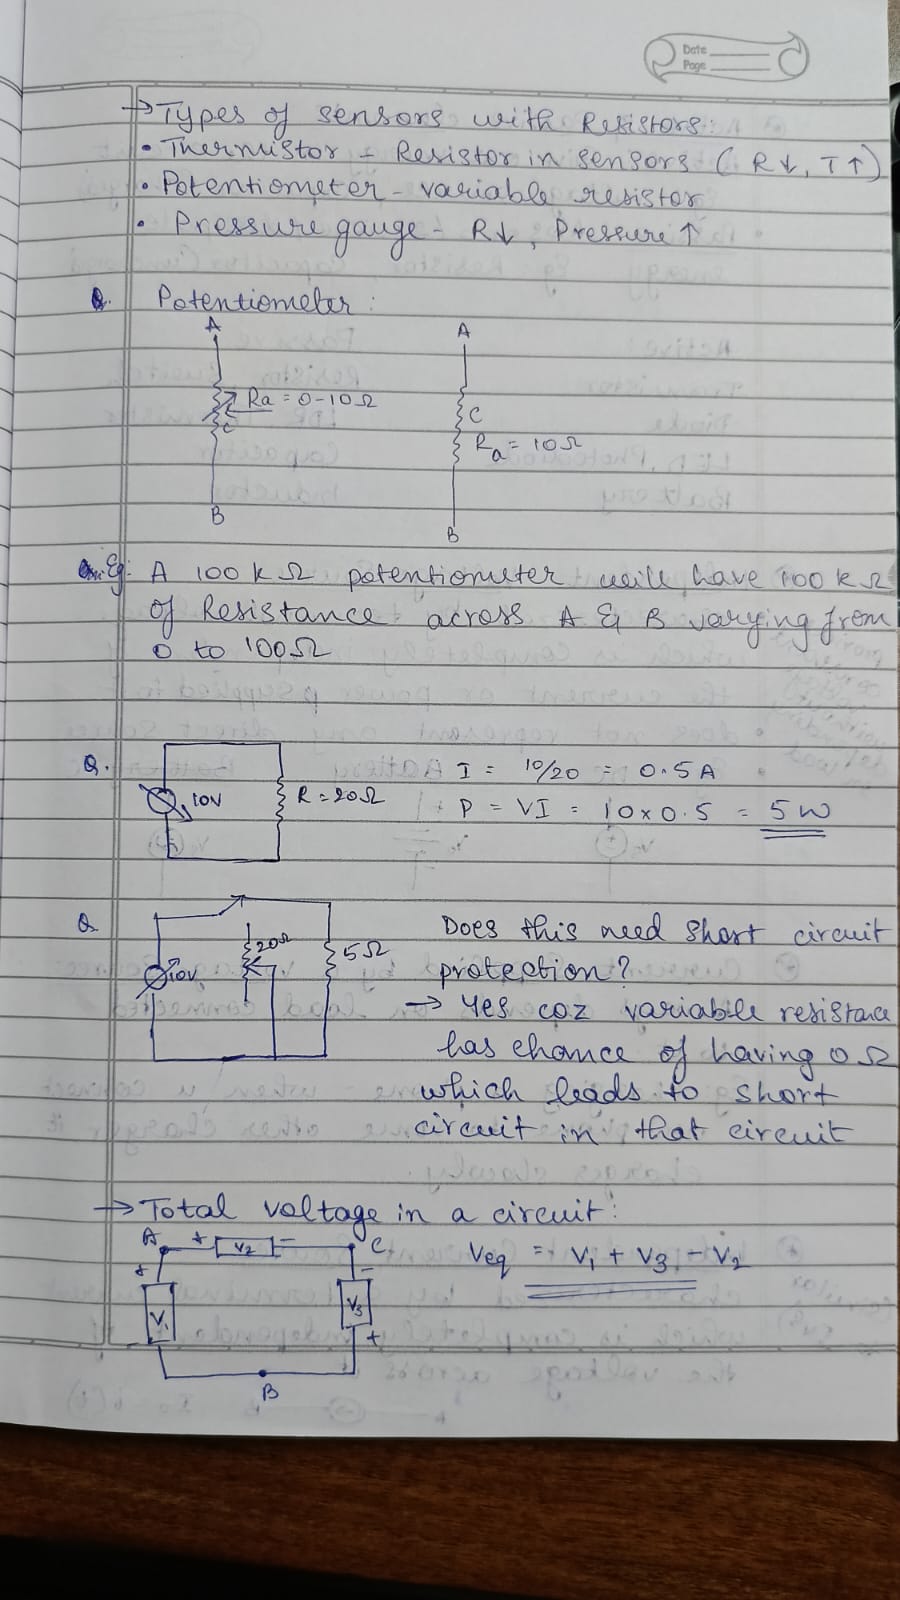 Date
Page
→ Types of sensors with Resistors:
• Thermistor - Resistor in sensors ( R↓, T↑)
• Potentiometer - variable resistor
• Pressure gauge - R↓, Pressure ↑
Q. Potentiometer:
A
A
Ra = 0-10Ω
C
C
Ra = 10Ω
B
B
Eg: A 100 k Ω potentiometer will have 100 k Ω
of Resistance across A & B varying from
0 to 100Ω
Q. 10V R = 20Ω I = 10/20 = 0.5 A
P = VI = 10 x 0.5 = 5 W
Q 10V 20Ω 5Ω Does this need short circuit
protection?
→ Yes coz variable resistance
has chance of having 0 Ω
which leads to short
circuit in that circuit
→ Total voltage in a circuit:
A + V2 - C Veq = V1 + V3 - V2
+ -
V1 V3
+
B